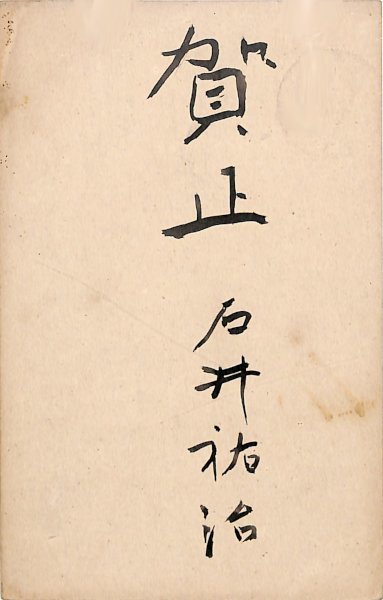 賀止
石井祐治